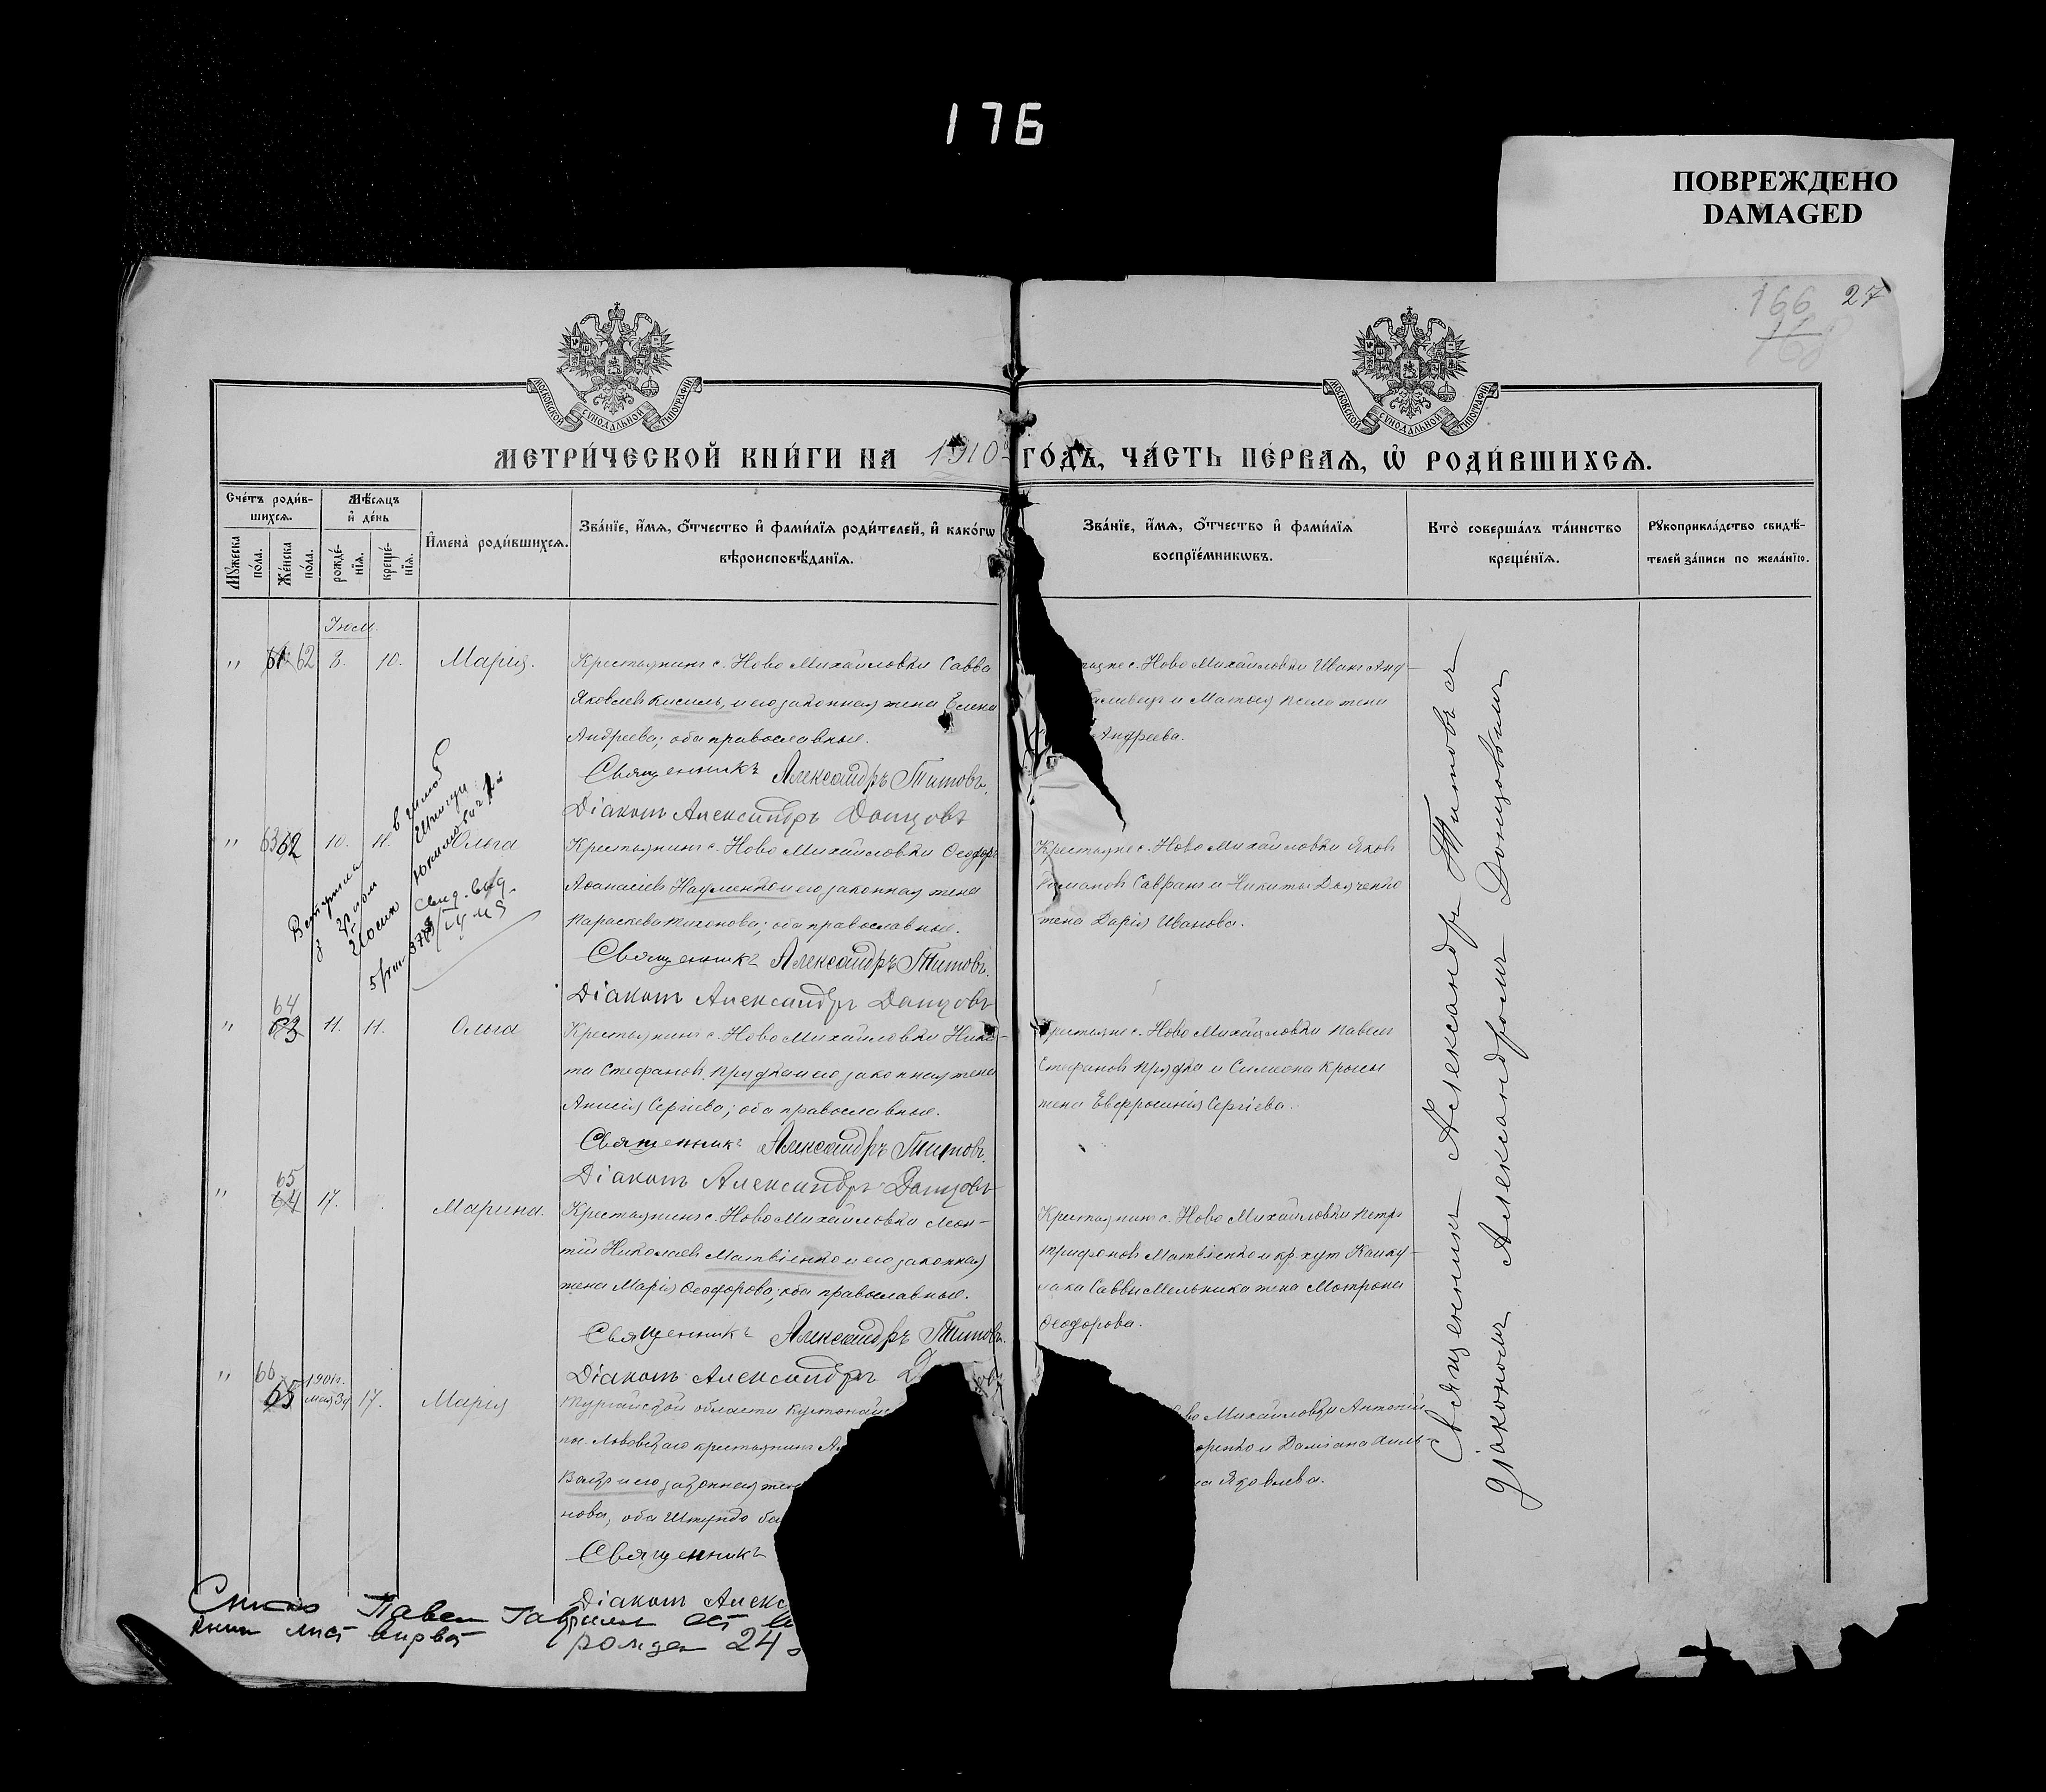 176
ПОВРЕЖДЕНО
DAMAGED
166 27
168
МОСКОВСКОЙ СѴНОДАЛЬНОЙ ТИПОГРАФІИ
МОСКОВСКОЙ СѴНОДАЛЬНОЙ ТИПОГРАФІИ
МЕТРИ́ЧЕСКОЙ КНИ́ГИ НА 1910 ГО́ДЪ, ЧА́СТЬ ПЕ́РВАѦ, Ѽ РОДИ́ВШИХСѦ.
Сче́тъ роди́в-
шихсѧ.
Мѣ́сѧцъ
и҆ де́нь
Мꙋ́жеска
по́ла.
Же́нска
по́ла.
рожде́-
нїѧ.
креще́-
нїѧ.
И҆мена̀ роди́вшихсѧ.
Зва́нїе, и҆́мѧ, ѻ҆́тчество и҆ фами́лїѧ роди́телей, и҆ како́гѡ
вѣроисповѣ́данїѧ.
Зва́нїе, и҆́мѧ, ѻ҆́тчество и҆ фами́лїѧ
воспрїе́мникѡвъ.
Кто̀ соверша́лъ та́инство
креще́нїѧ.
Рꙋкоприкла́дство свидѣ́-
телей за́писи по жела́нїю.
Іюль.
" 61 62 8. 10. Марія.
Крестьянинъ с. Ново Михайловки Савва
Яковлевъ Кисиль, и его законная жена Елена
Андреева; оба православные.
Священникъ Александръ Титовъ.
Діаконъ Александръ Донцовъ
с. Ново Михайловки Иванъ Анд-
и Матвея жена
Андреева.
" 63 62 10. 11. Ольга
Крестьянинъ с. Ново Михайловки Ѳеодоръ
Аѳанасіевъ Науменко и его законная жена
Параскева Тихонова; оба православные.
Священникъ Александръ Титовъ.
Діаконъ Александръ Донцовъ
Крестьяне с. Ново Михайловки Яковъ
Романовъ Савранъ и Никиты Дяченко
жена Дарія Иванова.
64
" 63 11. 11. Ольга
Крестьянинъ с. Ново Михайловки Ники-
та Стефановъ Прядка и его законная жена
Анисія Сергіева; оба православные.
Священникъ Александръ Титовъ.
Діаконъ Александръ Донцовъ
Крестьяне с. Ново Михайловки Павелъ
Стефановъ Прядка и Симеона Крысы
жена Евфросинія Сергіева.
65
" 64 17. Марина.
Крестьянинъ с. Ново Михайловки Леон-
тій Николаевъ Матвіенко и его законная
жена Марія Ѳеодорова; оба православные.
Священникъ Александръ Титовъ.
Діаконъ Александръ
Крестьянинъ с. Ново Михайловки Петръ
Трифоновъ Матвіенко и кр. хут. Канку-
лака Саввы Мельника жена Мотрона
Ѳеодорова.
66 1901г.
" 65 мая 30 17. Марія
Тургайской области Кустонайс
пос. Львовскаго крестьянинъ
и его законная жен
нова, оба Штундо ба
Священникъ
Діаконъ Алекс
Михайловки Антоній
и Даміана
Яковлева.
Священникъ Александръ Титовъ съ
діакономъ Александромъ Донцовымъ
Павел
лист рожден 24